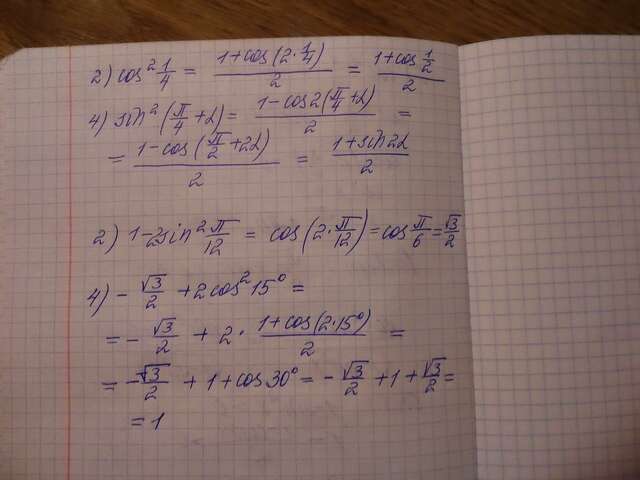 2) cos² 1/4 = (1+cos(2·1/4))/2 = (1+cos 1/2)/2
4) sin² (π/4 + α) = (1-cos2(π/4+α))/2 =
= (1-cos(π/2+2α))/2 = (1+sin2α)/2
2) 1-2sin² π/12 = cos(2·π/12) = cos π/6 = √3/2
4) - √3/2 + 2cos² 15° =
= - √3/2 + 2· (1+cos(2·15°))/2 =
= - √3/2 + 1 + cos30° = - √3/2 + 1 + √3/2 =
= 1